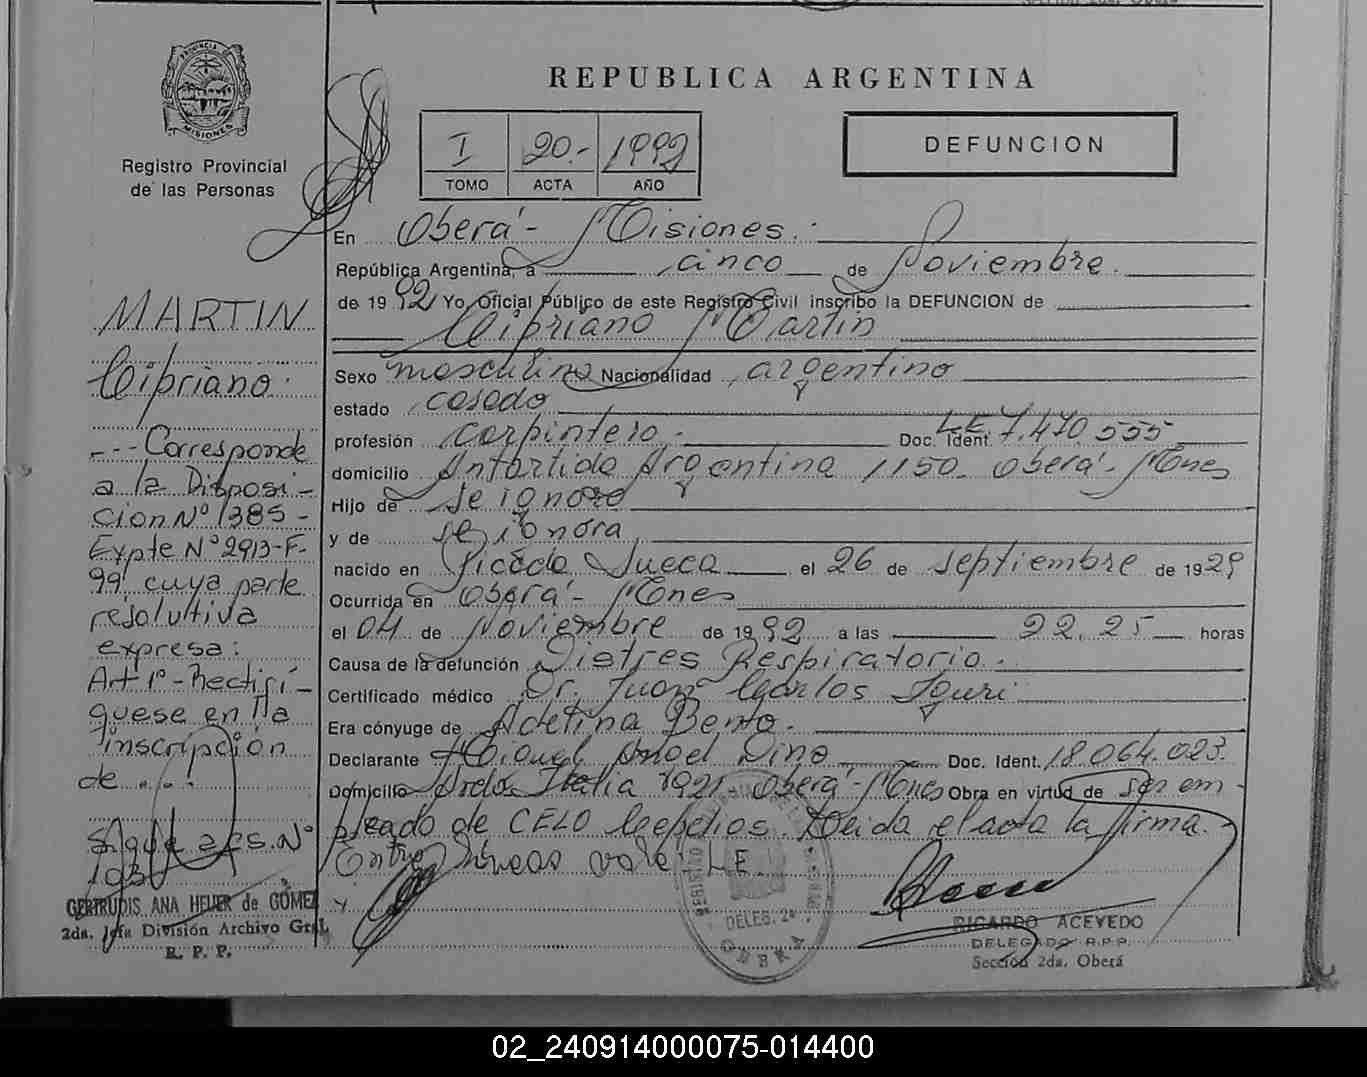 PROVINCIA DE
MISIONES
Registro Provincial
de las Personas
REPUBLICA ARGENTINA
I 20.- 1992
TOMO ACTA AÑO
DEFUNCION
En Oberá - Misiones.
República Argentina, a cinco de Noviembre
de 1992 Yo, Oficial Público de este Registro Civil inscribo la DEFUNCION de
Cipriano Martin
Sexo masculino Nacionalidad argentino
estado casado
profesión carpintero.- Doc. Ident. L.E 7.470.555
domicilio Antartida Argentina 1150 Oberá - Mnes
Hijo de se ignora
y de se ignora
nacido en Picada Sueca el 26 de septiembre de 1929
Ocurrida en Oberá - Mnes
el 04 de Noviembre de 1992 a las 22.25 horas
Causa de la defunción Distres Respiratorio.
Certificado médico Dr. Juan Carlos
Era cónyuge de Adelina Bento.
Declarante Miguel Angel Dino Doc. Ident. 18.064.023.
Domicilio Avda. Italia 1921 Oberá - Mnes Obra en virtud de ser em-
pleado de CELO Leida el acta la firma.
Entre líneas vale: LE.
MARTIN
Cipriano.
--- Corresponde
a la Disposi-
ción Nº 1385-
Expte Nº 2913-F-
99 cuya parte
resolutiva
expresa:
Art 1º - Rectifí-
quese en la
inscripción
de...
sigue a fs. Nº
103
GERTRUDIS ANA HEUER de GÓMEZ
2da. Jefa División Archivo Gral.
R. P. P.
DELEG. 2ª
OBERA
RICARDO ACEVEDO
DELEGADO R.P.P.
Sección 2da. Oberá
02_240914000075-014400